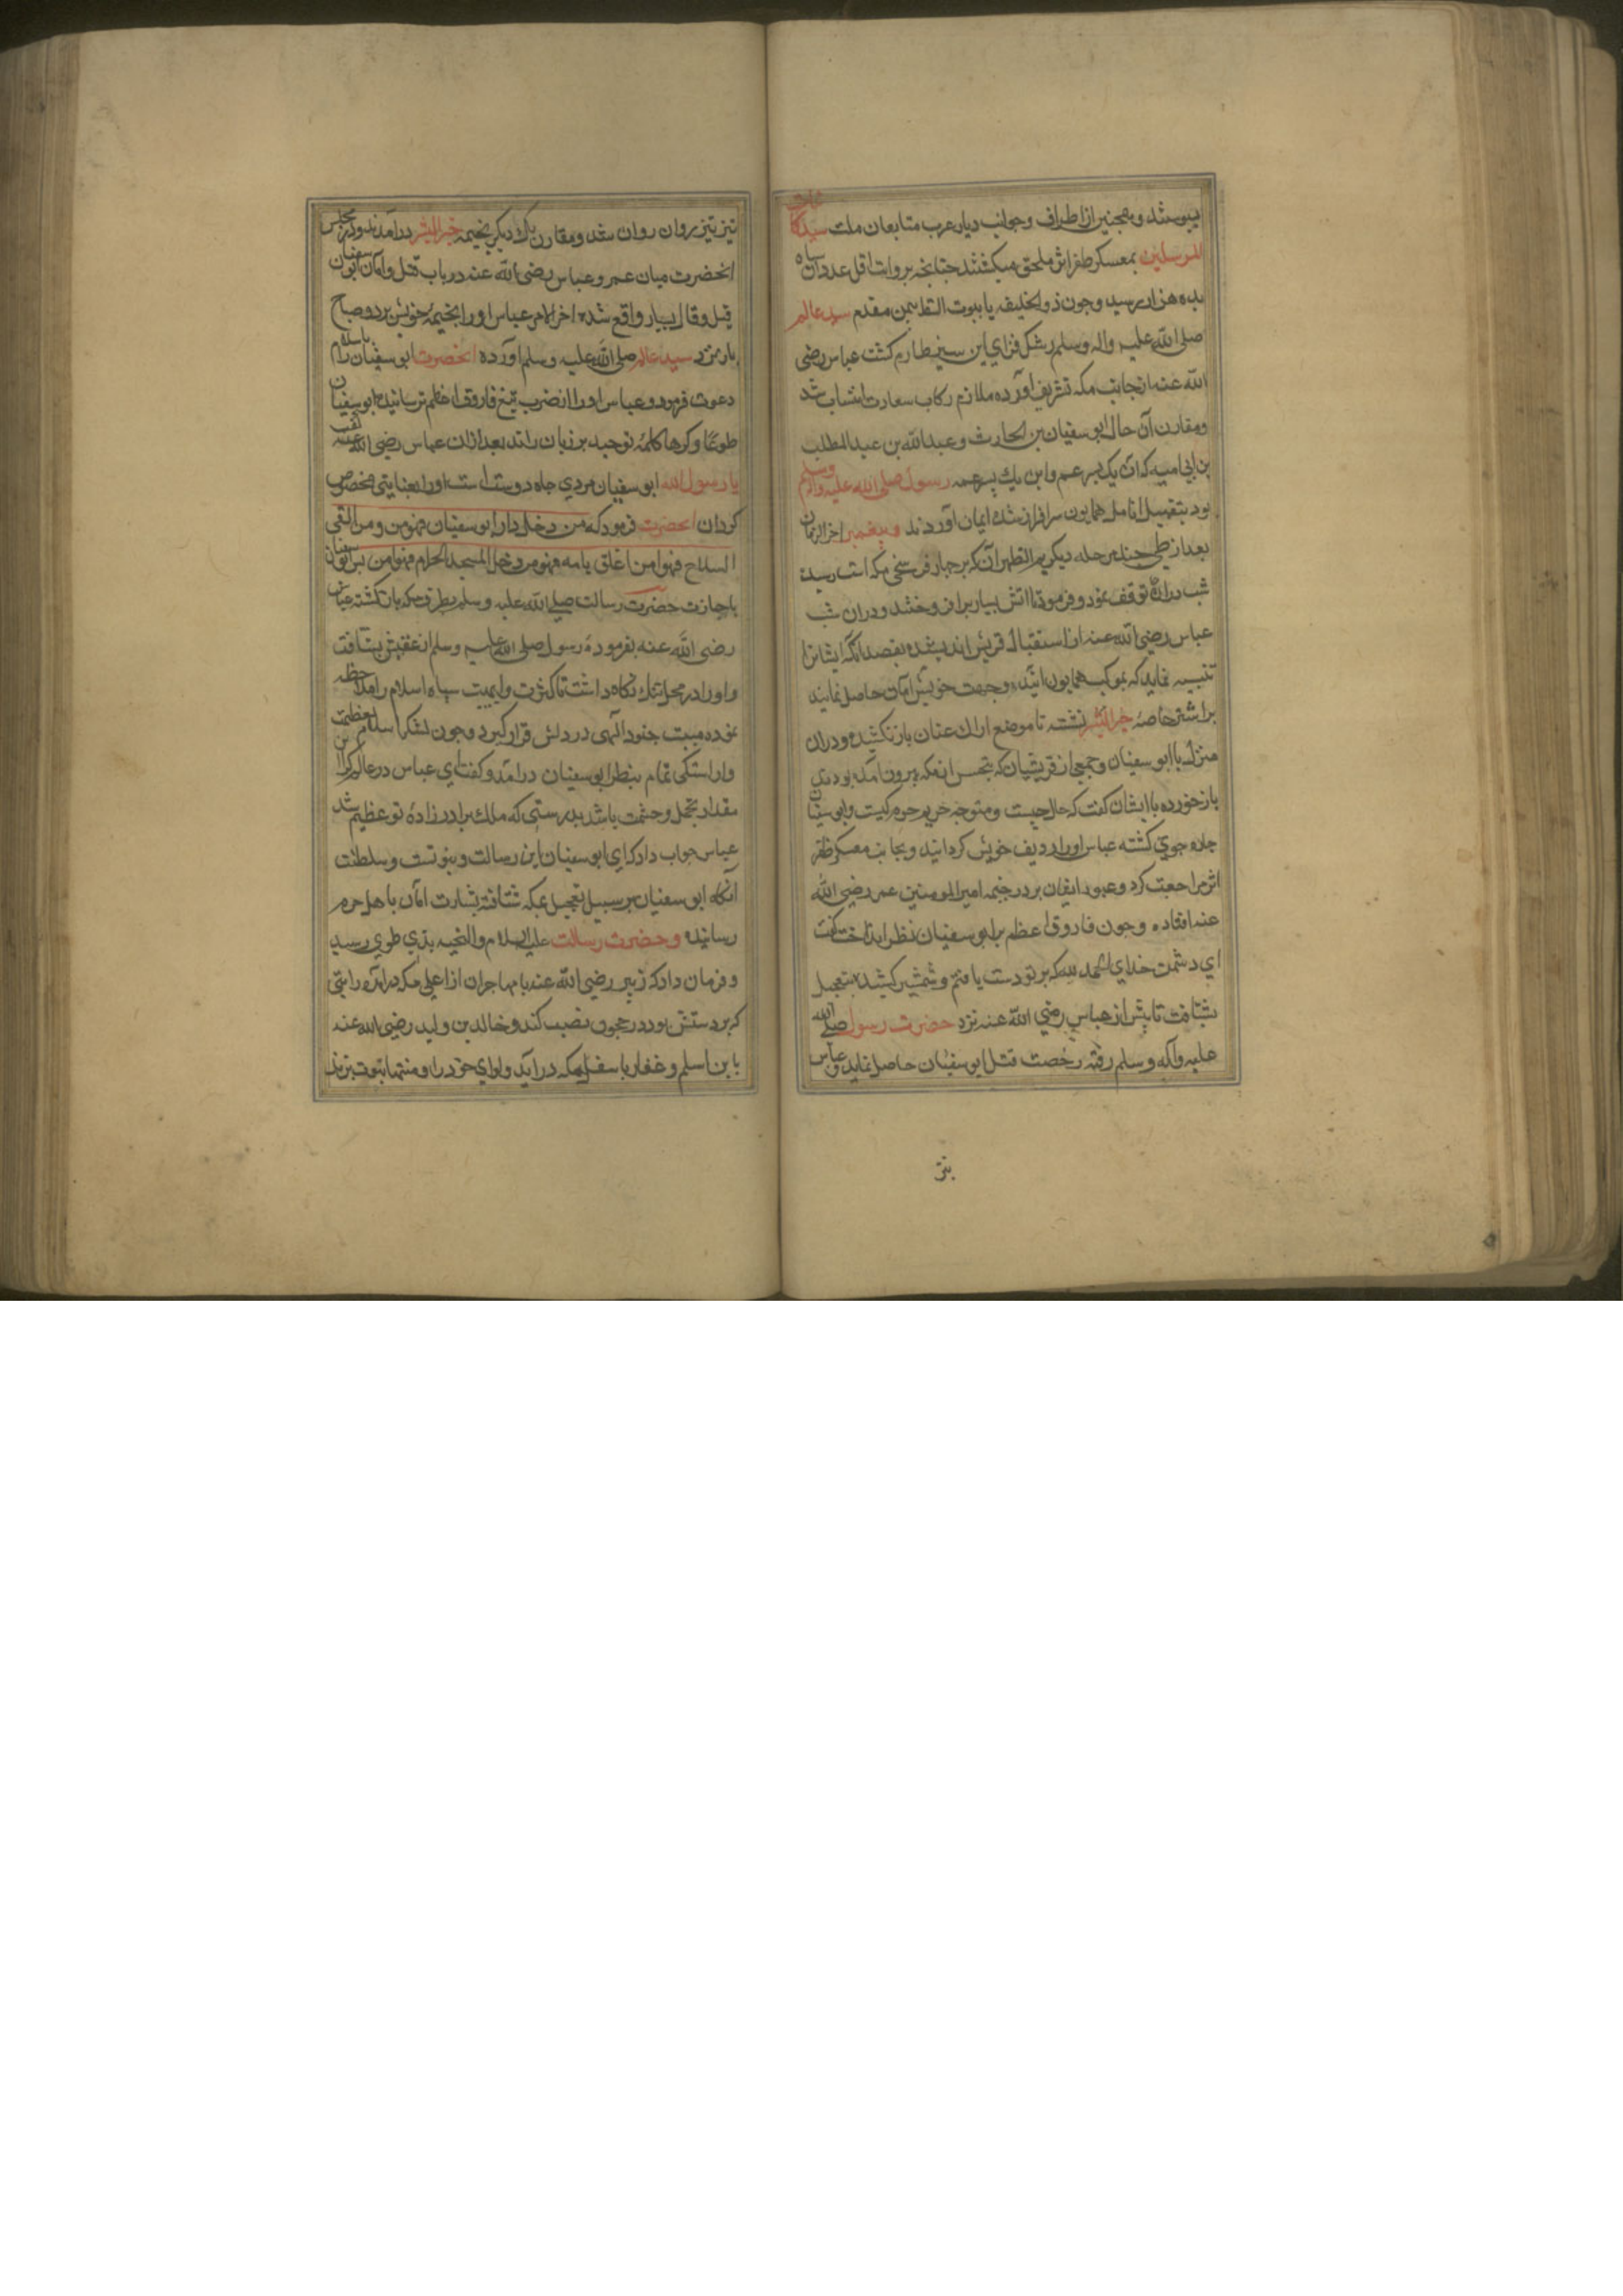 پیوستند و همچنین از اطراف و جوانب دیار عرب متابعان ملت سید کائنات
المرسلین بمعسکر ظفر اثر ملحق میکشتند جنانجه بروایت اقل عدد ان سپاه
بده هزار رسید و جون ذو الحلیفه یا بیوت السقیا بیمن مقدم سید عالم
صلی الله علیه واله وسلم رشک فزای این سبز طارم کشت عباس رضی
الله عنه از جانب مکه تشریف آورده ملازم رکاب سعادت انتساب شد
و مقارن آن حال ابو سفیان بن الحارث و عبد الله بن عبد المطلب
بن ابی امیه که ان یک پسر عم و این یک پسر عمه رسول صلی الله علیه واله وسلم
بود بتقبیل انامل همایون سرافراز شده ایمان آوردند و پیغمبر اخر الزمان
بعد از طی جند مرحله دیگر بمر الظهران که بر جهار فرسخی مکه است رسید
شب دران توقف نمود و فرمود تا اتش بسیار بر افروختند و دران شب
عباس رضی الله عنه از استقبال قریش اندیشیده بقصد انکه ایشانرا
تنبیه نماید که بموکب همایون ایند و جهت خویش امان حاصل نمایند
بر اشتر خاصه خیر البشر نشسته تا موضع اراک عنان باز نکشید و دران
منزل با ابو سفیان و جمعی از قریشیان که بتجسس از مکه بیرون آمده بودند
باز خورده با ایشان کفت که حال چیست و متوجه حریم حرم کیست و ابو سفیان
جاره جوی کشته عباس او را ردیف خویش کردانید و بجانب معسکر ظفر
اثر مراجعت کرد و عبور ایشان بر در خیمه امیر المومنین عمر رضی الله
عنه افتاده و جون فاروق اعظم بر ابو سفیان نظر انداخت کفت
ای دشمن خدای الحمد لله که بر تو دست یافتم و شمشیر کشیده بتعجیل
بشتافت تا پیش از عباس رضی الله عنه نزد حضرت رسول صلی الله
علیه واله وسلم رفته رخصت قتل ابو سفیان حاصل نماید و عباس
تیز
تیز تیز روان روان شد و مقارن یک دیگر بخیمه خیر البشر درآمدند و در مجلس
انحضرت میان عمر و عباس رضی الله عنه در باب قتل و امان ابو سفیان
قیل و قال بسیار واقع شده اخر الامر عباس او را بخیمه خویش برد و صباح
باز نزد سید عالم صلی الله علیه وسلم آورده انحضرت ابو سفیان را باسلام
دعوت فرمود و عباس او را از ضرب تیغ فاروق اعظم ترسانید ابو سفیان
طوعا و کرها کلمه توحید بر زبان راند بعد ازان عباس رضی الله عنه گفت
یا رسول الله ابو سفیان مردی جاه دوست است او را بعنایتی مخصوص
کردان انحضرت فرمود که من دخل دار ابو سفیان فهو من ومن القی
السلاح فهو امن اغلق بابه فهو من دخل المسجد الحرام فهو امن پس ابو سفیان
باجازت حضرت رسالت صلی الله علیه وسلم بطرف مکه بازکشته عباس
رضی الله عنه بفرموده رسول صلی الله علیه وسلم از عقبش بشتافت
و او را در محل تنک نکاه داشت تا کثرت و اهبت سپاه اسلام را ملاحظه
نموده هیبت جنود الهی در دلش قرار کیرد و جون لشکر اسلام بعظمت
و اراستکی تمام بنظر ابو سفیان درآمد و کفت ای عباس در عالم کرا این
مقدار تجمل و حشمت باشد بدرستی که ملک برادرزاده تو عظیم شد
عباس جواب داد که ای ابو سفیان این رسالت و نبوتست و سلطنت
آنکاه ابو سفیان بر سبیل تعجیل بمکه شتافته بشارت امان باهل حرم
رسانیده و حضرت رسالت علیه السلام والتحیه بذی طوی رسید
و فرمان داد که زبیر رضی الله عنه با مهاجران از اعلی مکه درآمده رایتی
که بر دستش بود در حجون نصب کند و خالد بن ولید رضی الله عنه
با بن اسلم و غفار باسفل مکه درآید و لوای خود را و منتهای بیوت بزند